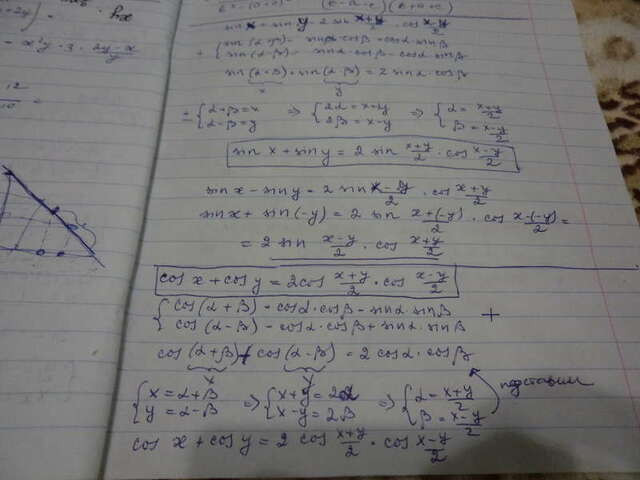 sin x + sin y = 2 sin (x+y)/2 · cos (x-y)/2
+ { sin(α+β) = sinα·cosβ + cosα·sinβ
sin(α-β) = sinα·cosβ - cosα·sinβ
sin(α+β) + sin(α-β) = 2 sinα·cosβ
x y
± { α+β=x ⇒ { 2α=x+y ⇒ { α = (x+y)/2
α-β=y 2β=x-y β = (x-y)/2
sin x + sin y = 2 sin (x+y)/2 · cos (x-y)/2
sin x - sin y = 2 sin (x-y)/2 · cos (x+y)/2
sin x + sin(-y) = 2 sin (x+(-y))/2 · cos (x-(-y))/2 =
= 2 sin (x-y)/2 · cos (x+y)/2
cos x + cos y = 2cos (x+y)/2 · cos (x-y)/2
{ cos(α+β) = cosα·cosβ - sinα·sinβ
cos(α-β) = cosα·cosβ + sinα·sinβ +
cos(α+β) + cos(α-β) = 2 cosα·cosβ
x y
подставим
{ x=α+β ⇒ { x+y=2α ⇒ { α = (x+y)/2
y=α-β x-y=2β β = (x-y)/2
cos x + cos y = 2 cos (x+y)/2 · cos (x-y)/2